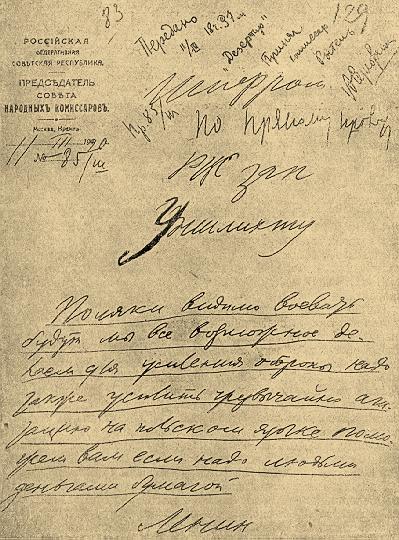 83
129
Передано
11/III 18 г. 37 м.
РОССІЙСКАЯ
ФЕДЕРАТИВНАЯ
СОВѢТСКАЯ РЕСПУБЛИКА.
ПРЕДСѢДАТЕЛЬ
СОВѢТА
НАРОДНЫХЪ КОМИССАРОВЪ.
Москва, Кремль.
11 III 1920
№ 85/III
Шифром
По прямому проводу
РВС зап
Уншлихту
Поляки видимо воевать
будут мы все возможное де-
лаем для усиления обороны надо
также усилить чрезвычайно аги-
тацию на польском языке помо-
жем вам если надо людьми
деньгами бумагой
Ленин